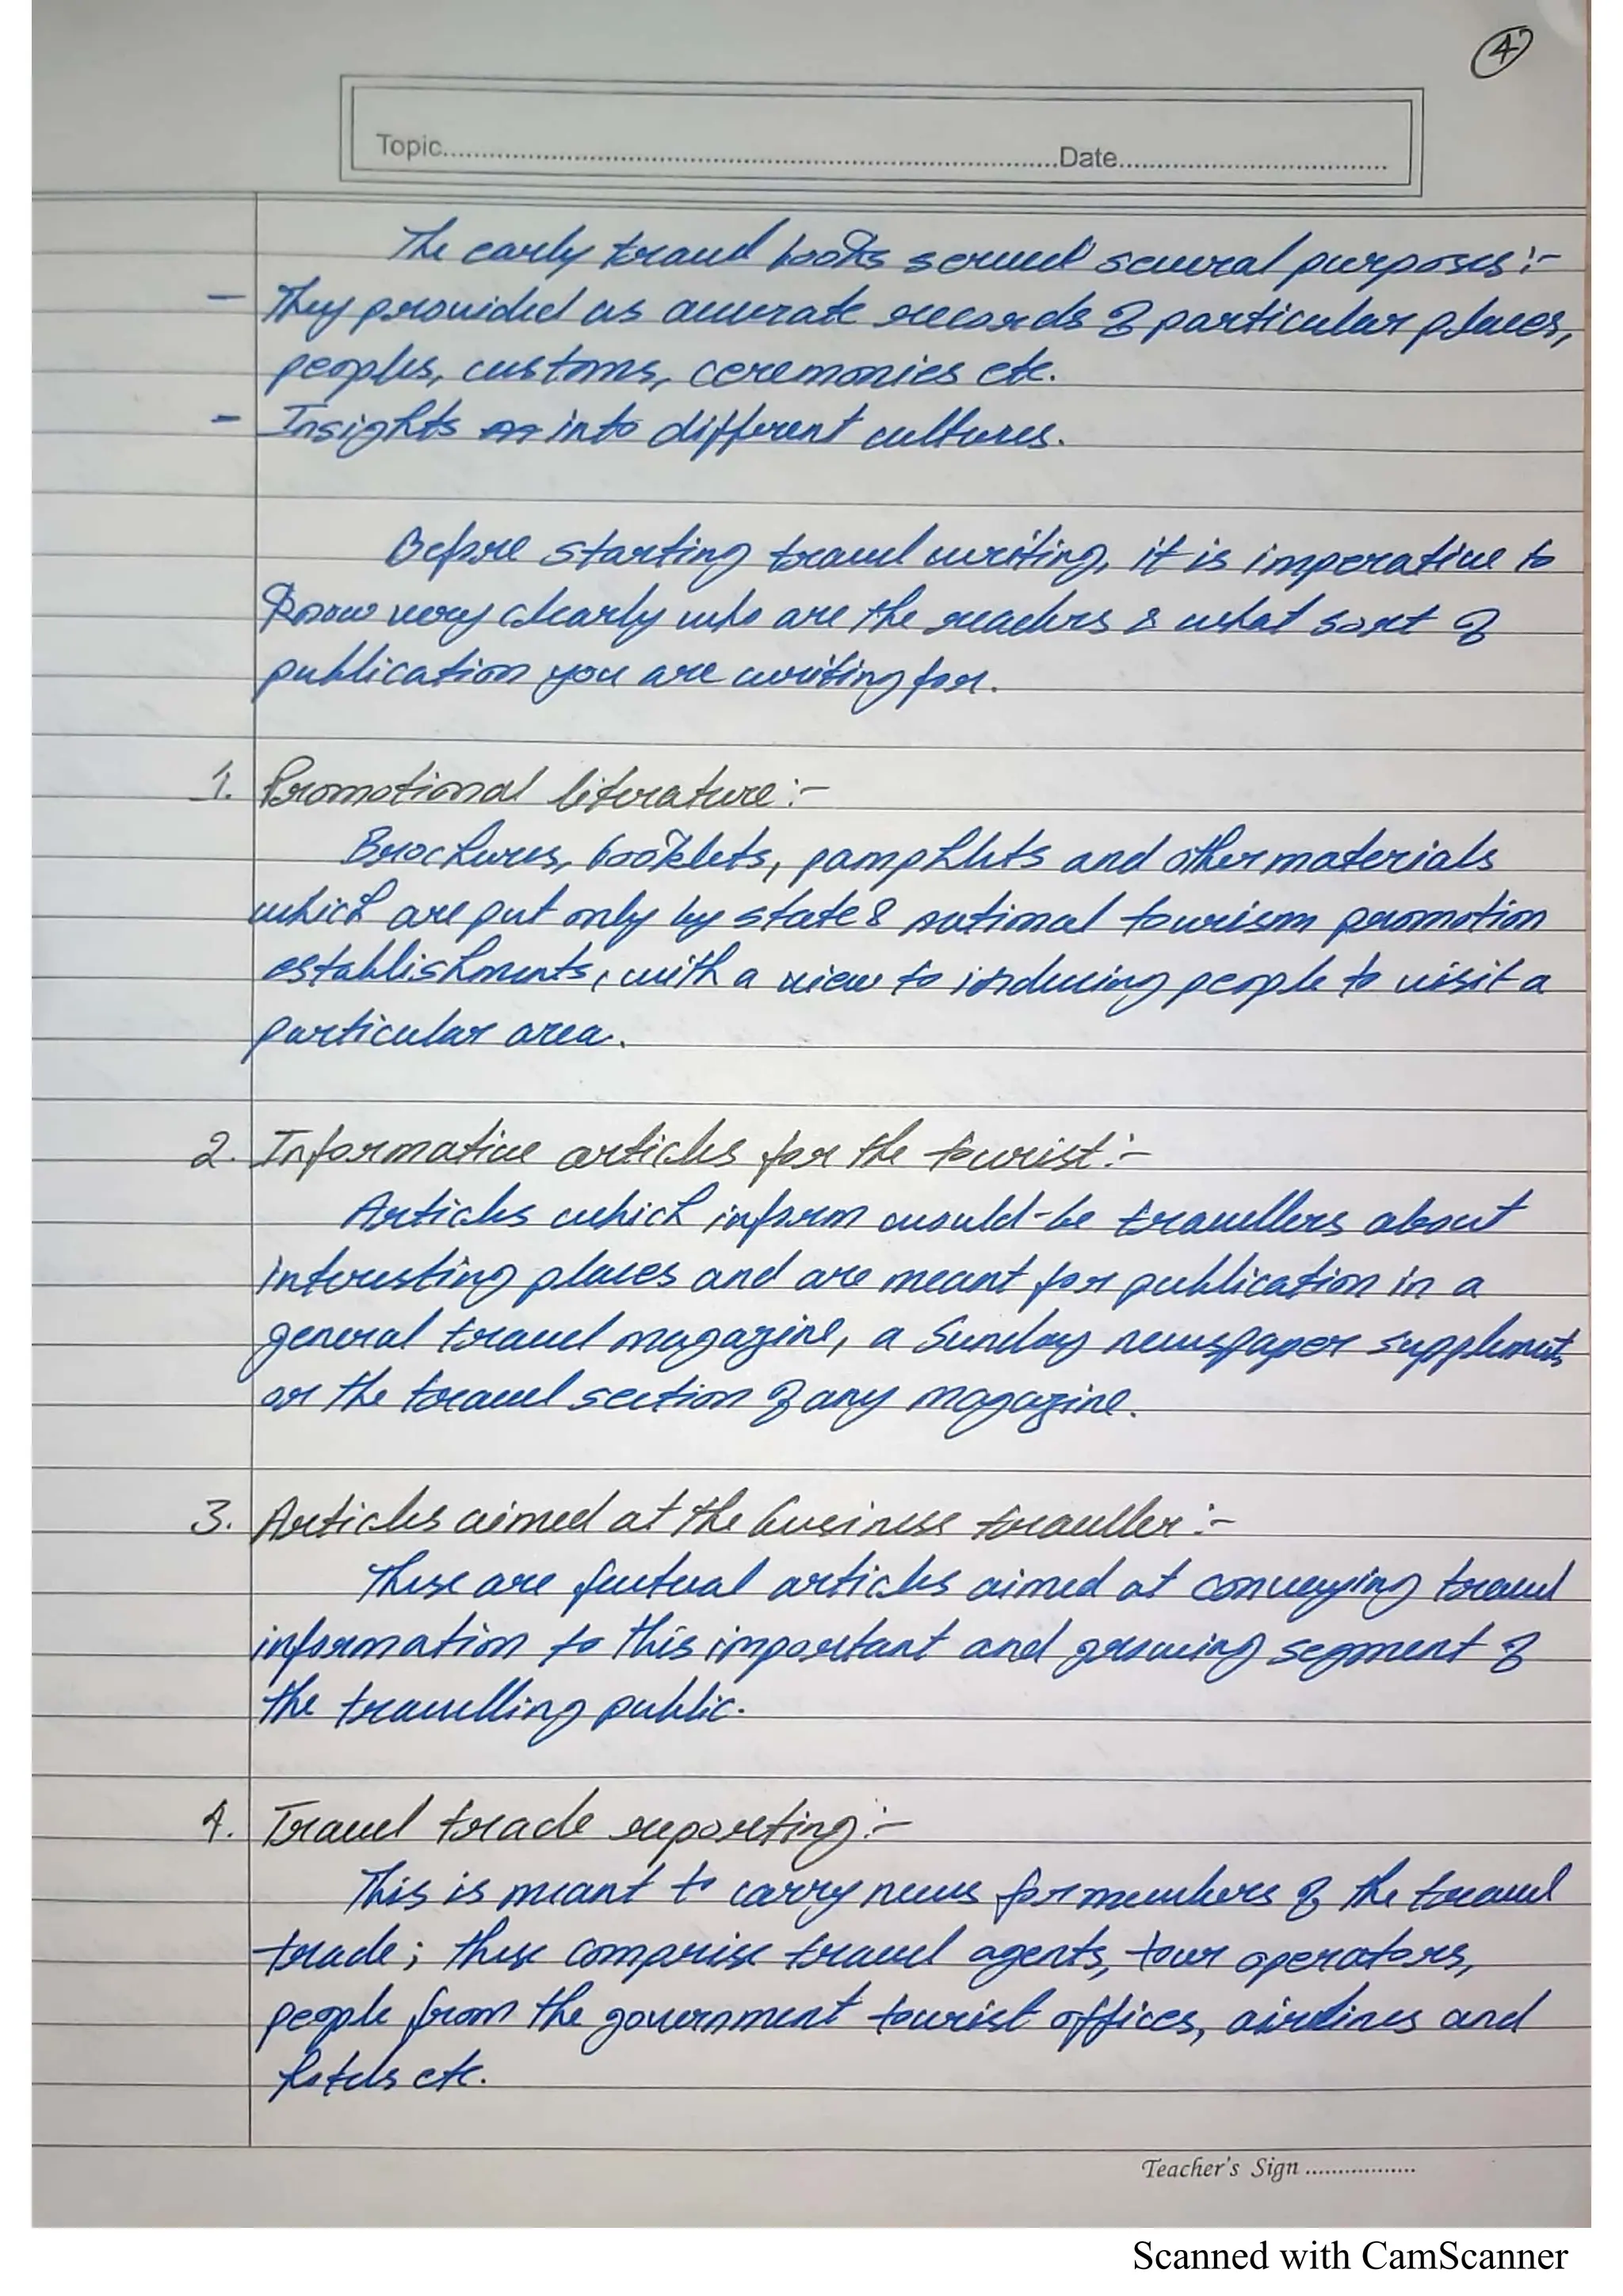 4
Topic..............................Date..............................
The early travel books served several purposes:-
- They provided as accurate records of particular places,
peoples, customs, ceremonies etc.
- Insights into different cultures.
Before starting travel writing, it is imperative to
know very clearly who are the readers & what sort of
publication you are writing for.
1. Promotional literature:-
Brochures, booklets, pamphlets and other materials
which are put only by state & national tourism promotion
establishments, with a view to inducing people to visit a
particular area.
2. Informative articles for the tourist:-
Articles which inform would-be travellers about
interesting places and are meant for publication in a
general travel magazine, a Sunday newspaper supplement,
or the travel section of any magazine.
3. Articles aimed at the business traveller:-
These are factual articles aimed at conveying travel
information to this important and growing segment of
the travelling public.
4. Travel trade reporting:-
This is meant to carry news for members of the travel
trade; these comprise travel agents, tour operators,
people from the government tourist offices, airlines and
hotels etc.
Teacher's Sign ..................
Scanned with CamScanner